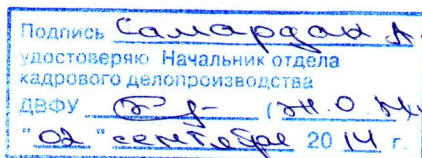 Подпись Самардак А.
удостоверяю Начальник отдела
кадрового делопроизводства
ДВФУ (Ж.О.
"02" сентября 2014 г.